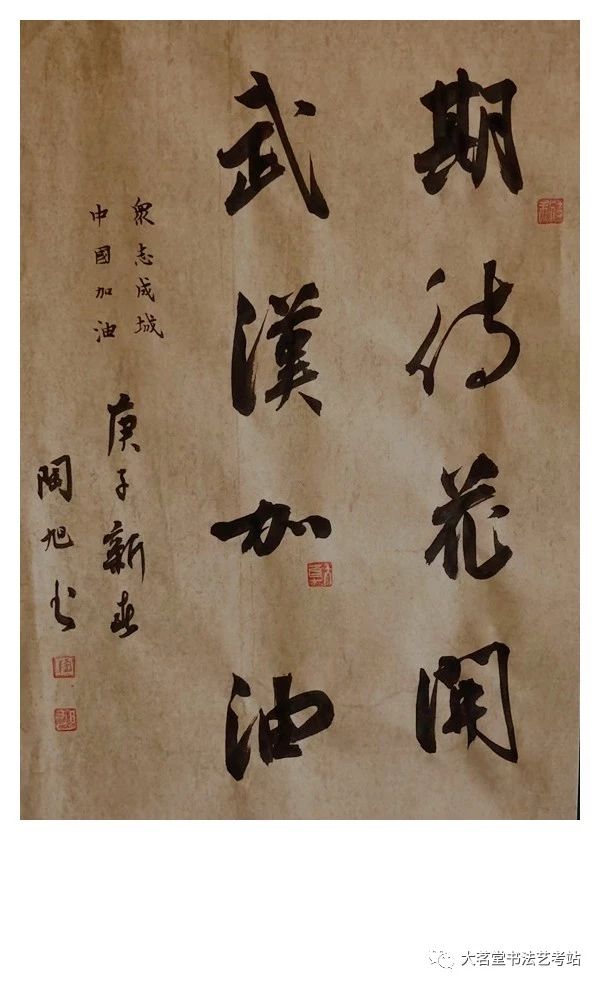 期待花開
武漢加油
衆志成城
中國加油
庚子新春
陶旭书
大茗堂书法艺考站